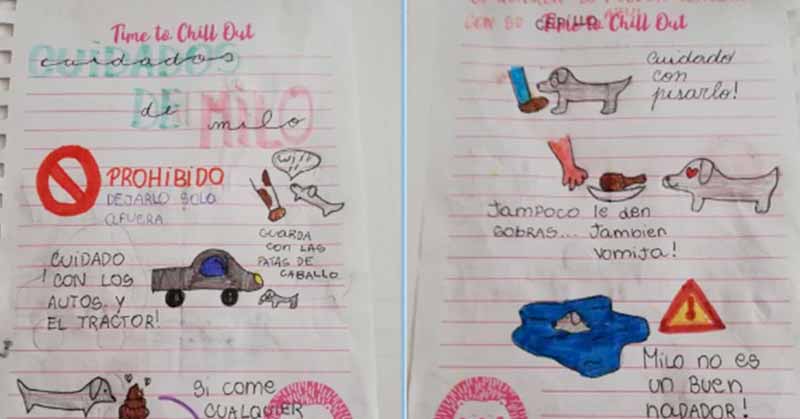 Time to Chill Out
cuidados
CUIDADOS
de
DE
milo
MILO
PROHIBIDO
DEJARLO SOLO
AFUERA
GUARDA
CON LAS
PATAS DE
CABALLO
CUIDADO
CON LOS
AUTOS Y
EL TRACTOR!
Si come
CUALQUIER
CON SU CEPILLO AZUL
Time to Chill Out
Cuidado
con
pisarlo!
TAMPOCO le den
SOBRAS... Tambien
vomita!
Milo no es
un Buen
NADADOR!